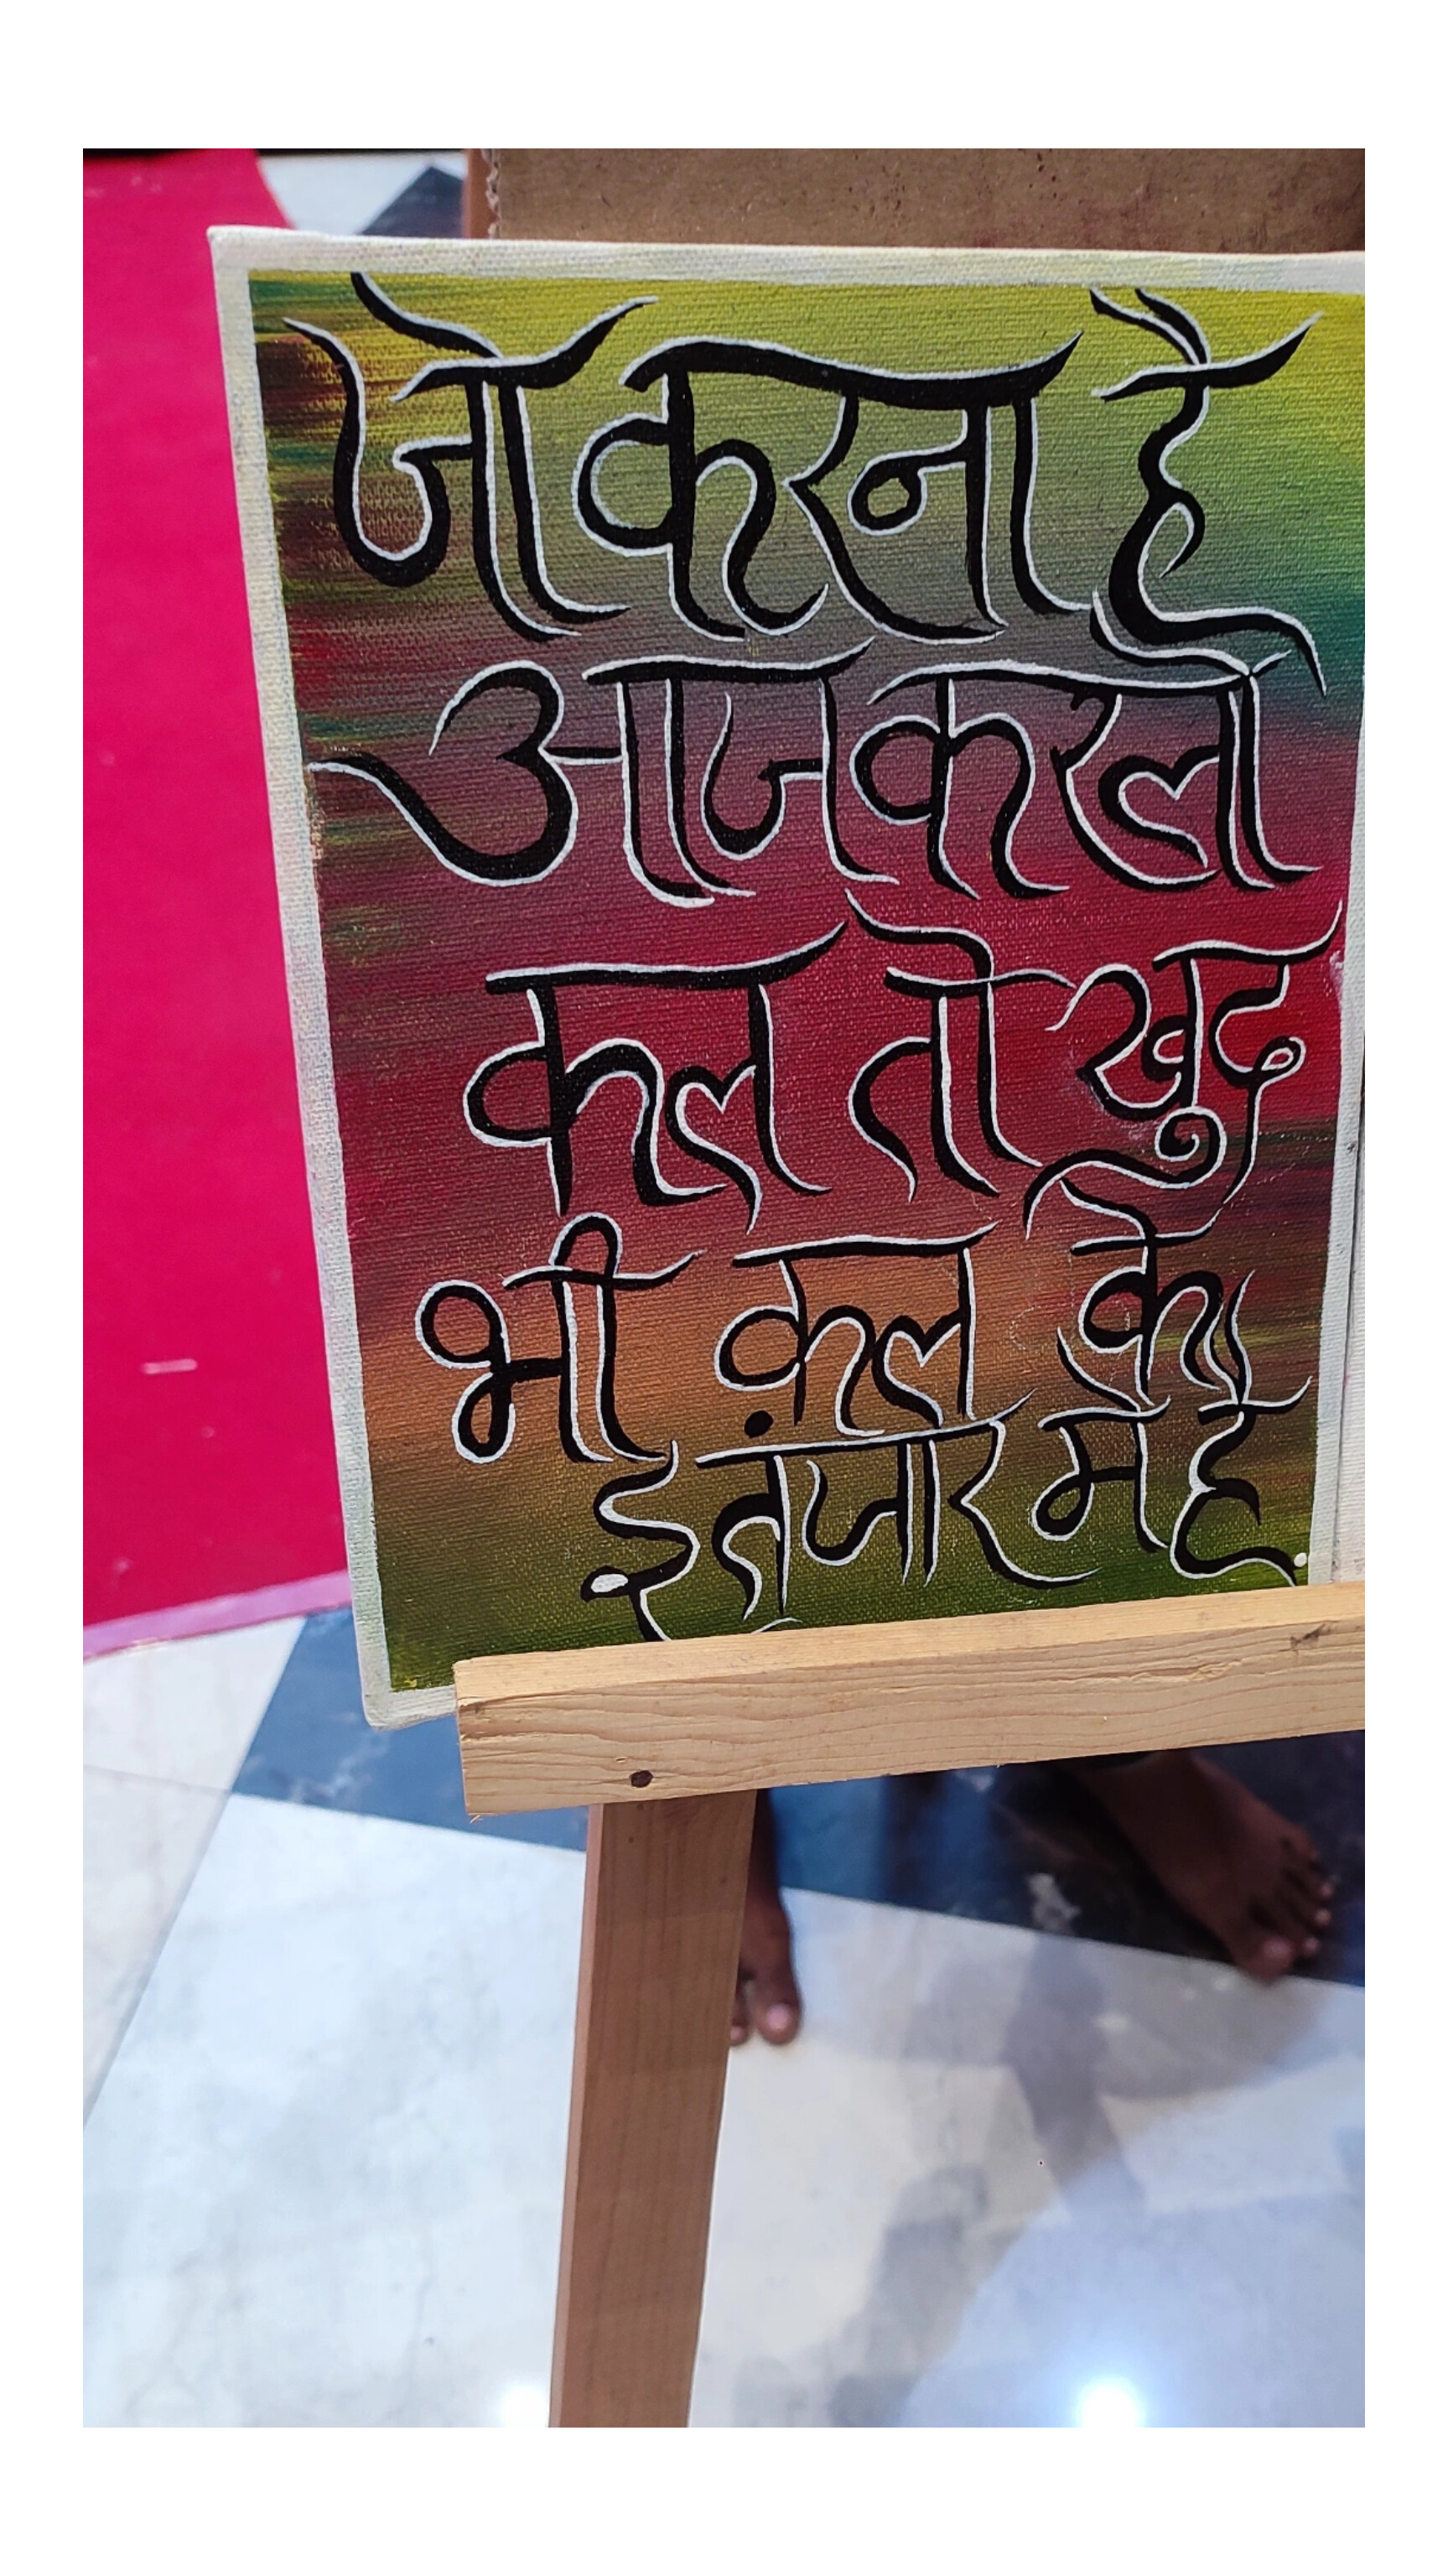 जो करना है
आज कर लो
कल तो खुद
भी कल के
इंतजार में है.